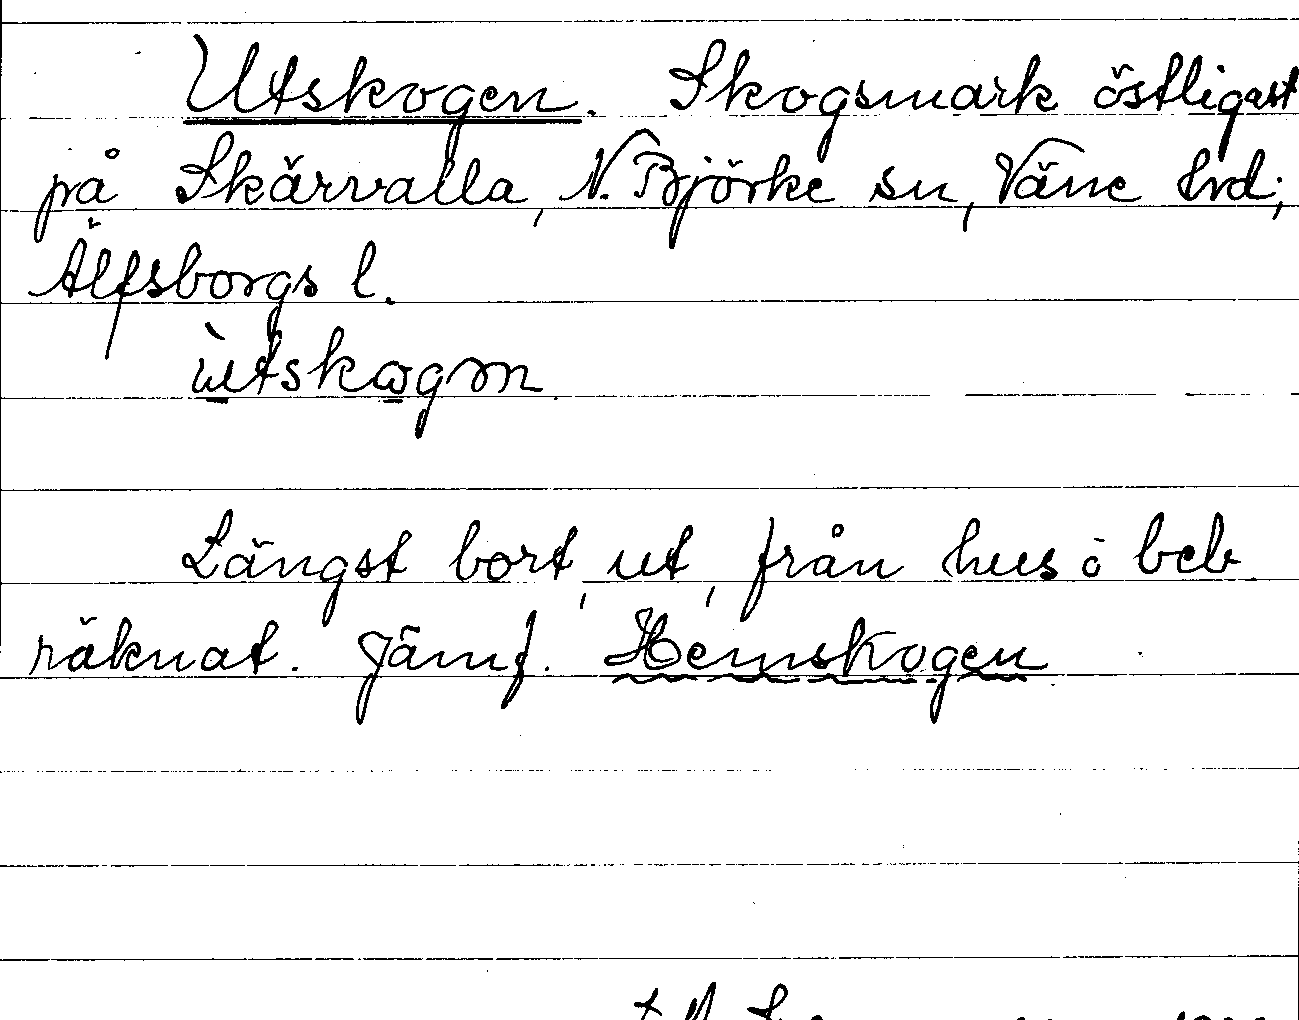 Utskogen. Skogsmark östligast
på Skärvalla, N. Björke sn, Väne hrd;
Älfsborgs l.
ùtskogm
Längst bort, ut, från hus o beb.
räknat. Jämf. Hemskogen